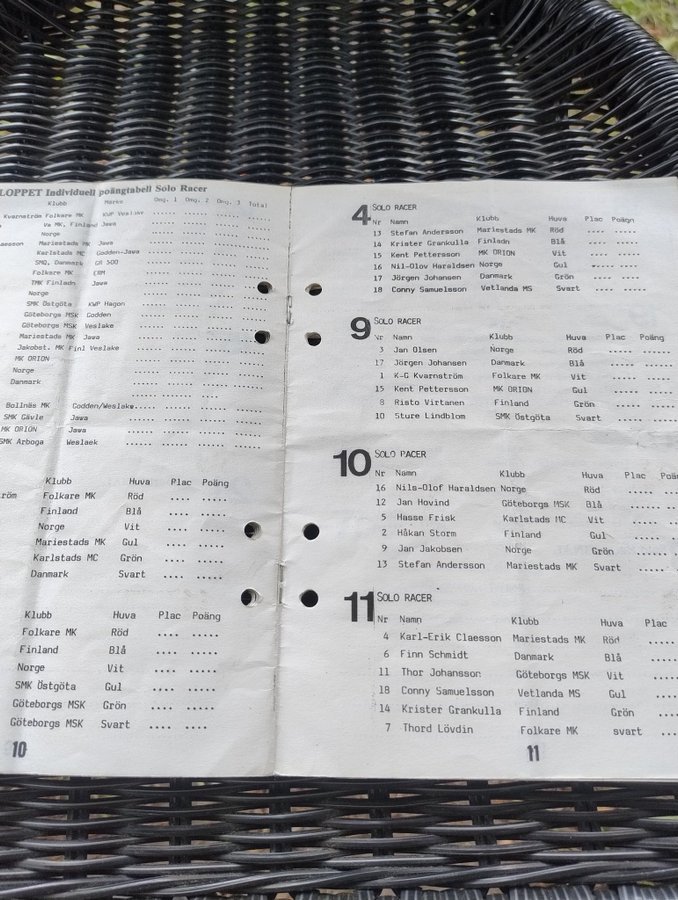 LOPPET Individuell poängtabell Solo Racer
Klubb Märke Omg. 1 Omg. 2 Omg. 3 Total
Kvarnström Folkare MK KWP Veslake .....  ..... ..... .....
Va MK, Finland Jawa ..... ..... ..... .....
Norge ..... ..... ..... .....
Claesson Mariestads MK Jawa ..... ..... ..... .....
Karlstads MC Godden-Jawa ..... ..... ..... .....
SMQ, Danmark GM 500 ..... ..... ..... .....
Folkare MK ERM ..... ..... ..... .....
TMK Finland Jawa ..... ..... ..... .....
Norge ..... ..... ..... .....
SMK Östgöta KWP Hagon ..... ..... ..... .....
Göteborgs MSK Godden ..... ..... ..... .....
Göteborgs MSK Veslake ..... ..... ..... .....
Mariestads MK Jawa ..... ..... ..... .....
Jakobst. MK Finl Veslake ..... ..... ..... .....
MK ORION ..... ..... ..... .....
Norge ..... ..... ..... .....
Danmark ..... ..... ..... .....
..... ..... .....
Bollnäs MK Godden/Weslake..... ..... ..... .....
SMK Gävle Jawa ..... ..... ..... .....
MK ORION Jawa ..... ..... ..... .....
SMK Arboga Weslaek ..... ..... ..... .....
Klubb Huva Plac Poäng
röm Folkare MK Röd .... .....
Finland Blå .... .....
Norge Vit .... .....
Mariestads MK Gul .... .....
Karlstads MC Grön .... .....
Danmark Svart .... .....
Klubb Huva Plac Poäng
Folkare MK Röd .... .....
Finland Blå .... .....
Norge Vit .... .....
SMK Östgöta Gul .... .....
Göteborgs MSK Grön .... .....
Göteborgs MSK Svart .... .....
10
4 SOLO RACER
Nr Namn Klubb Huva Plac Poäng
13 Stefan Andersson Mariestads MK Röd .... .....
14 Krister Grankulla Finladn Blå .... .....
15 Kent Pettersson MK ORION Vit .... .....
16 Nil-Olov Haraldsen Norge Gul .... .....
17 Jörgen Johansen Danmark Grön .... .....
18 Conny Samuelsson Vetlanda MS Svart .... .....
9 SOLO RACER
Nr Namn Klubb Huva Plac Poäng
3 Jan Olsen Norge Röd .... .....
17 Jörgen Johansen Danmark Blå .... .....
1 K-G Kvarnström Folkare MK Vit .... .....
15 Kent Pettersson MK ORION Gul .... .....
8 Risto Virtanen Finland Grön .... .....
10 Sture Lindblom SMK Östgöta Svart .... .....
10 SOLO RACER
Nr Namn Klubb Huva Plac Poän
16 Nils-Olof Haraldsen Norge Röd .... .....
12 Jan Hovind Göteborgs MSK Blå .... .....
5 Hasse Frisk Karlstads MC Vit .... .....
2 Håkan Storm Finland Gul .... .....
9 Jan Jakobsen Norge Grön .... .....
13 Stefan Andersson Mariestads MK Svart .... .....
11 SOLO RACER
Nr Namn Klubb Huva Plac
4 Karl-Erik Claesson Mariestads MK Röd ....
6 Finn Schmidt Danmark Blå ....
11 Thor Johansson Göteborgs MSK Vit ....
18 Conny Samuelsson Vetlanda MS Gul ....
14 Krister Grankulla Finland Grön ....
7 Thord Lövdin Folkare MK svart ....
11